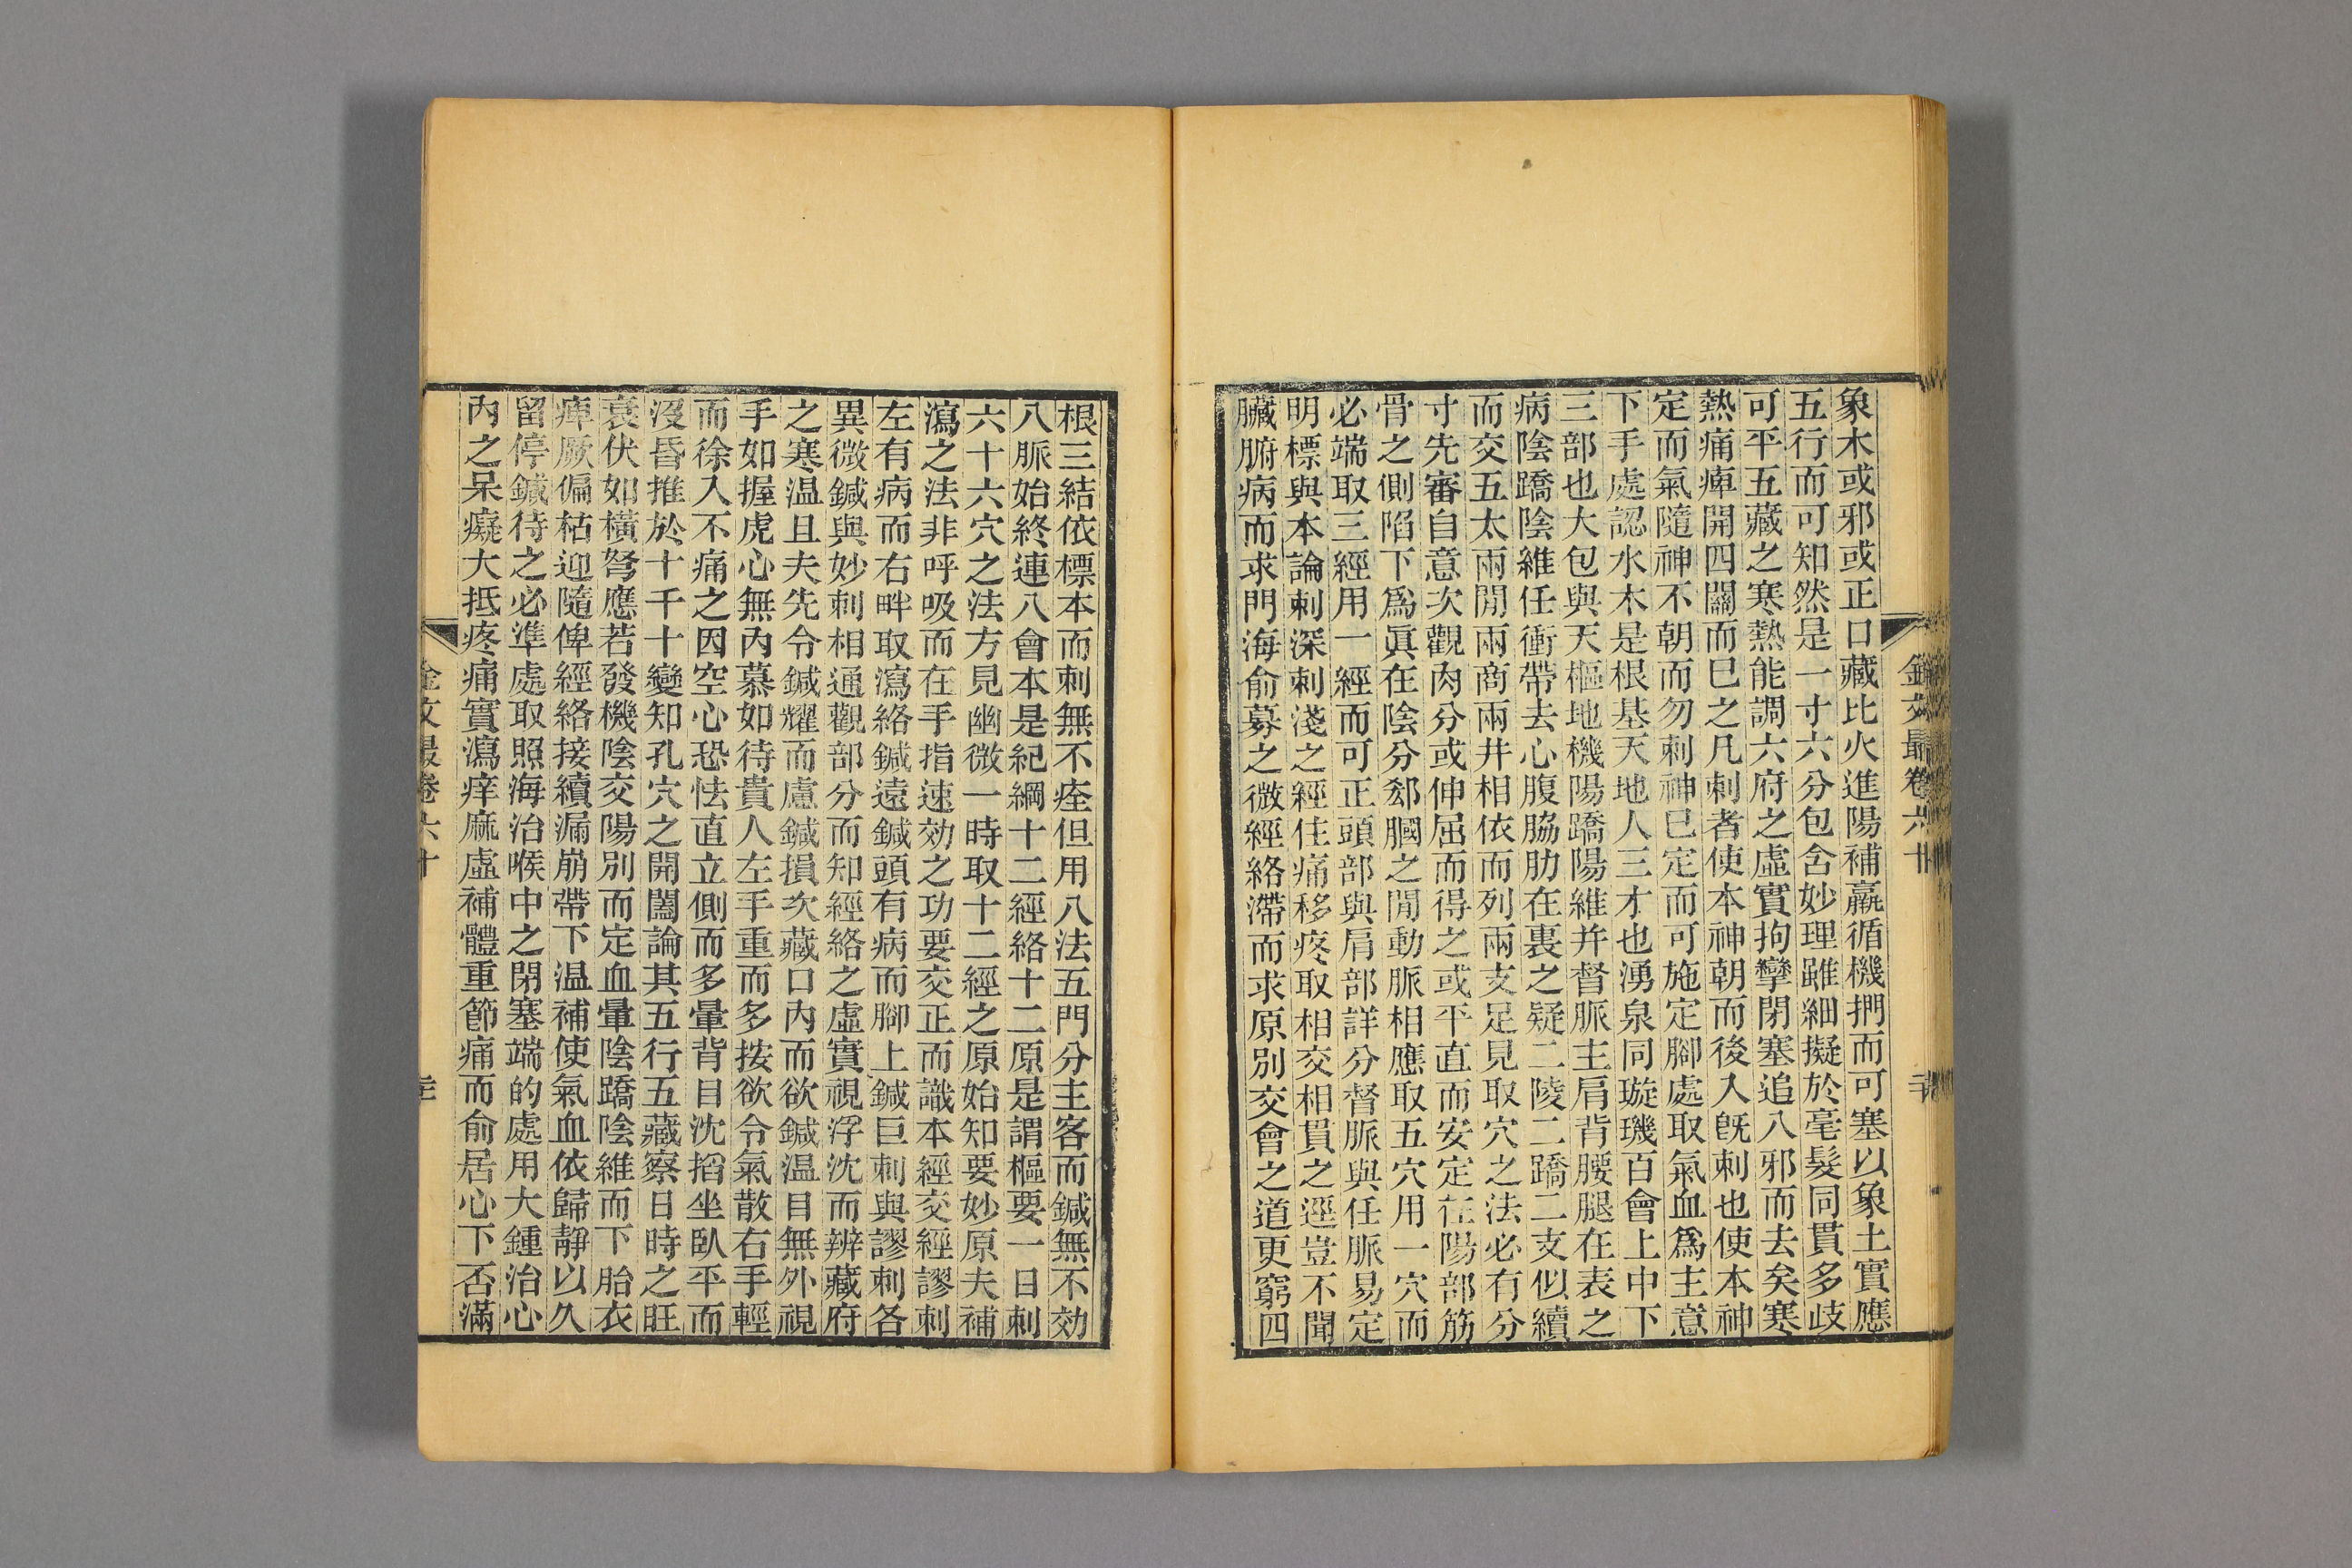 金文最卷六十
象木或邪或正口藏比火進陽補羸循機捫而可塞以象土實應
五行而可知然是一寸六分包含妙理雖細擬於毫髮同貫多歧
可平五藏之寒熱能調六府之虛實拘攣閉塞追八邪而去矣寒
熱痛痺開四關而已之凡刺者使本神朝而後入旣刺也使本神
定而氣隨神不朝而勿刺神已定而可施定腳處取氣血爲主意
下手處認水木是根基天地人三才也湧泉同璇璣百會上中下
三部也大包與天樞地機陽蹻陽維并督脈主肩背腰腿在表之
病陰蹻陰維任衝帶去心腹脇肋在裏之疑二陵二蹻二支似續
而交五太兩閒兩商兩井相依而列兩支足見取穴之法必有分
寸先審自意次觀肉分或伸屈而得之或平直而安定在陽部筋
骨之側陷下爲眞在陰分郄膕之閒動脈相應取五穴用一穴而
必端取三經用一經而可正頭部與肩部詳分督脈與任脈易定
明標與本論刺深刺淺之經住痛移疼取相交相貫之逕豈不聞
臟腑病而求門海俞募之微經絡滯而求原別交會之道更窮四
根三結依標本而刺無不痊但用八法五門分主客而鍼無不効
八脈始終連八會本是紀綱十二經絡十二原是謂樞要一日刺
六十六穴之法方見幽微一時取十二經之原始知要妙原夫補
瀉之法非呼吸而在手指速効之功要交正而識本經交經謬刺
左有病而右畔取瀉絡鍼遠鍼頭有病而腳上鍼巨刺與謬刺各
異微鍼與妙刺相通觀部分而知經絡之虛實視浮沈而辨藏府
之寒温且夫先令鍼耀而慮鍼損次藏口內而欲鍼温目無外視
手如握虎心無內慕如待貴人左手重而多按欲令氣散右手輕
而徐入不痛之因空心恐怯直立側而多暈背目沈搯坐臥平而
沒昏推於十千十變知孔穴之開闔論其五行五藏察日時之旺
衰伏如橫弩應若發機陰交陽別而定血暈陰蹻陰維而下胎衣
痺厥偏枯迎隨俾經絡接續漏崩帶下温補使氣血依歸靜以久
留停鍼待之必準處取照海治喉中之閉塞端的處用大鍾治心
內之呆癡大抵疼痛實瀉痒麻虛補體重節痛而俞居心下否滿
金文最卷六十